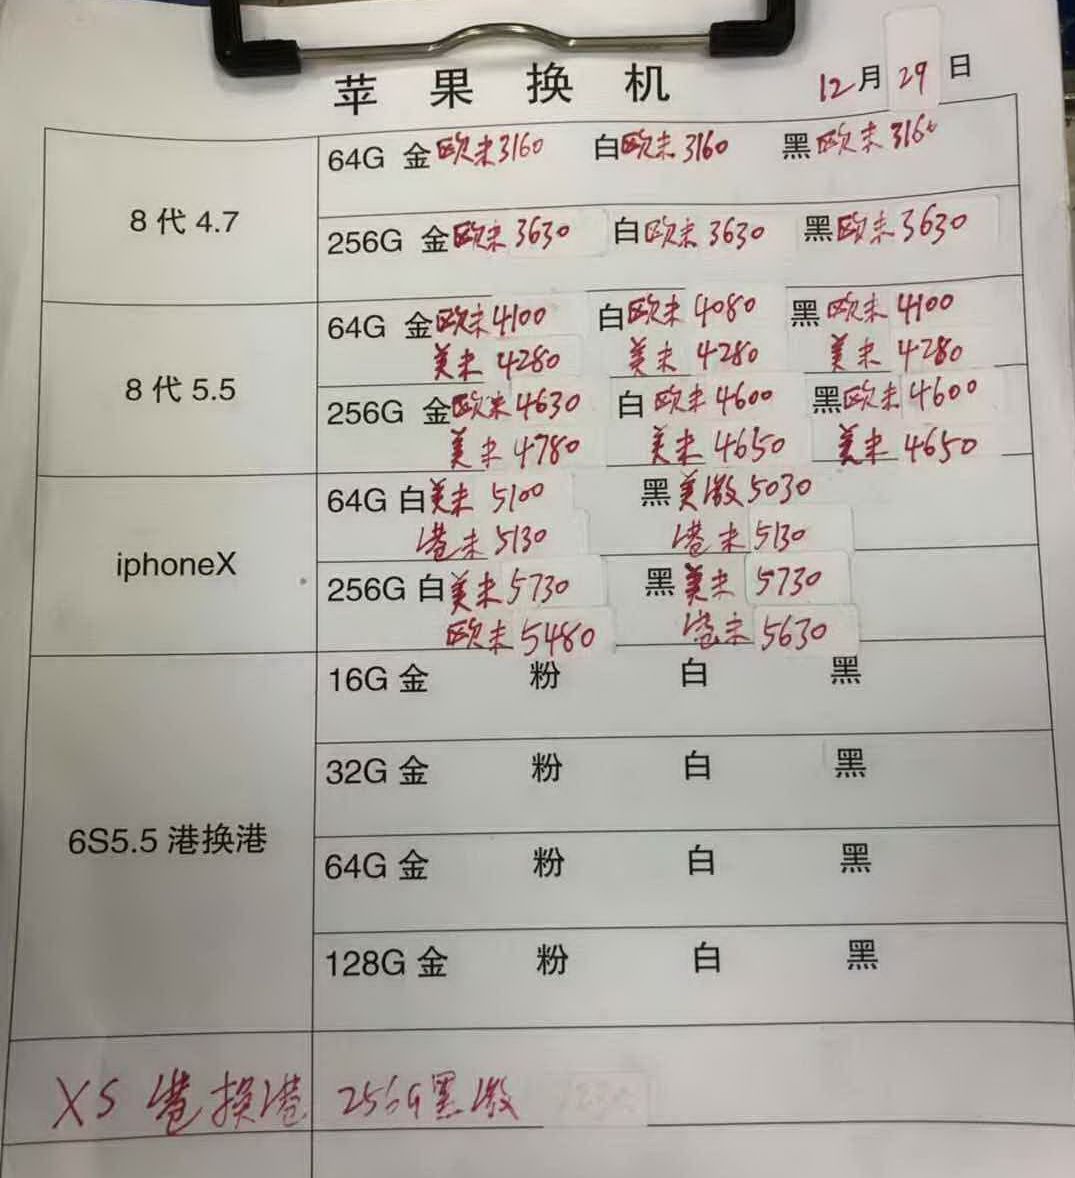 苹果换机 12月29日
64G 金欧未3160 白欧未3160 黑欧未3160
8代4.7
256G 金欧未3630 白欧未3630 黑欧未3630
64G 金欧未4100 白欧未4080 黑欧未4100
美未4280 美未4280 美未4280
8代5.5
256G 金欧未4630 白欧未4600 黑欧未4600
美未4780 美未4650 美未4650
64G 白美未5100 黑美激5030
港未5130 港未5130
iphoneX
256G 白美未5730 黑美未5730
欧未5480 港未5630
16G 金 粉 白 黑
32G 金 粉 白 黑
6S5.5港换港
64G 金 粉 白 黑
128G 金 粉 白 黑
XS港换港 256G黑激